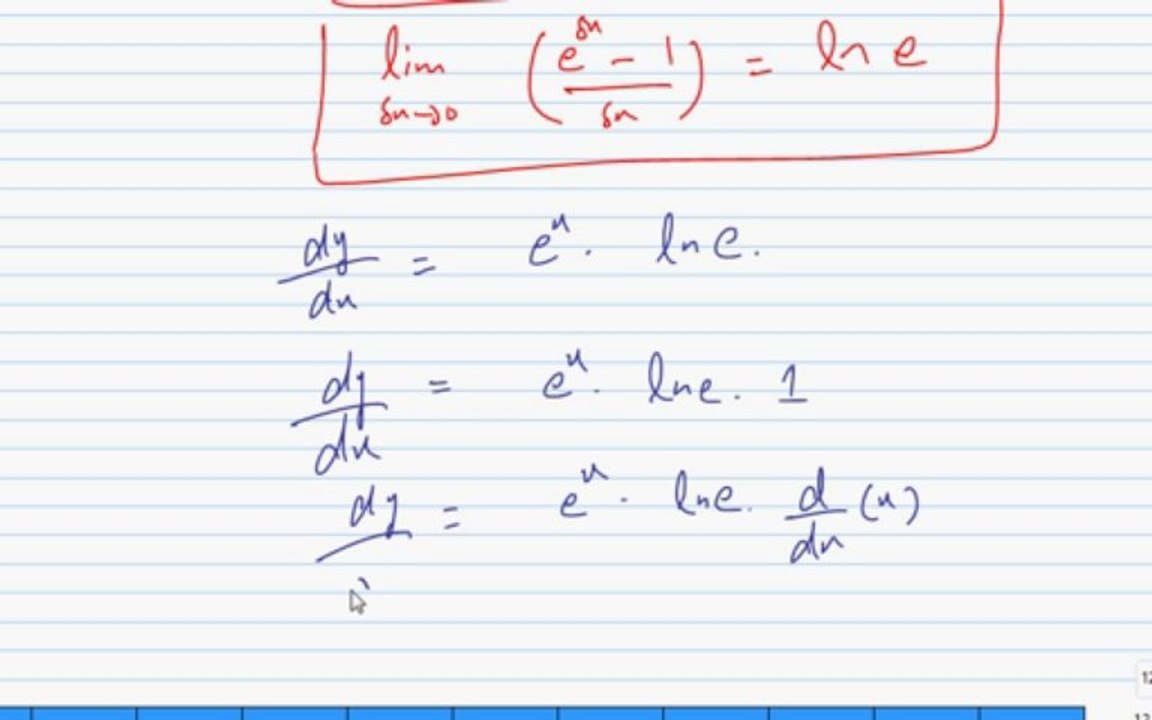 lim δx→0 (e^δx − 1 / δx) = ln e
dy/dx = e^x . ln e.
dy/dx = e^x . ln e . 1
dy/ = e^x . ln e . d/dx (x)